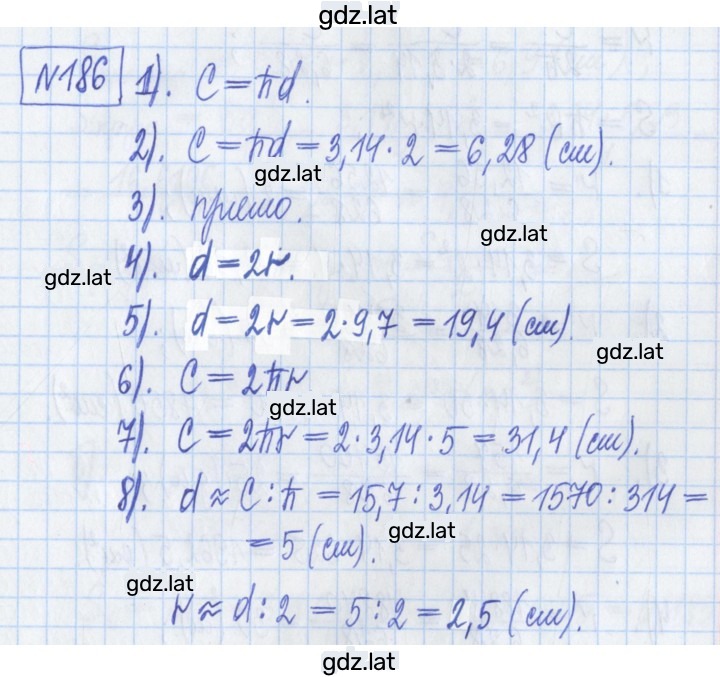 gdz.lat
№186 1). C = πd.
2). C = πd = 3,14 · 2 = 6,28 (см).
gdz.lat
3). прямо.
gdz.lat
4). d = 2r.
gdz.lat
5). d = 2r = 2 · 9,7 = 19,4 (см).
gdz.lat
6). C = 2πr
gdz.lat
7). C = 2πr = 2 · 3,14 · 5 = 31,4 (см).
8). d ≈ C : π = 15,7 : 3,14 = 1570 : 314 =
= 5 (см).
gdz.lat
gdz.lat
r ≈ d : 2 = 5 : 2 = 2,5 (см).
gdz.lat